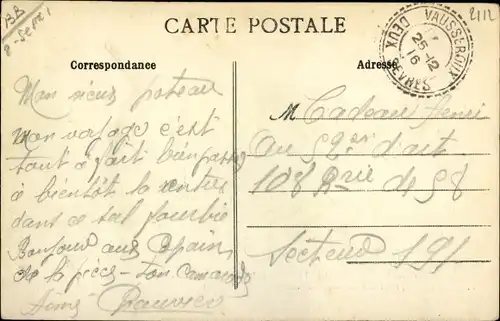 BB
CARTE POSTALE
VAUSSEROUX
25-12
16
DEUX SEVRES
2112
Correspondance
Adresse
Mon vieux poteau
Mon voyage c'est
tout à fait bien passé
à bientôt la rentrée
dans ce
Bonjour aux Copains
de la pièce - ton camarade
M Cadeau Henri
au 52 d'art
108 Rie de 58
Secteur 191